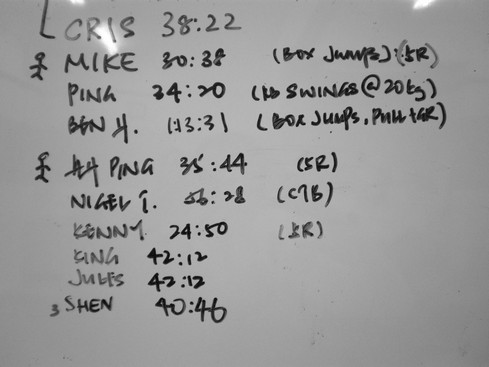 CRIS 38:22
MIKE 30:38 (BOX JUMPS)
PING 34:20 (KB SWINGS @ 20kg)
BEN H. 1:13:31 (BOX JUMPS,
PING 35:44 (5R)
NIGEL T. 56:28 (CTB)
KENNY 24:50 (5R)
KING 42:12
JULES 42:12
3 SHEN 40:46